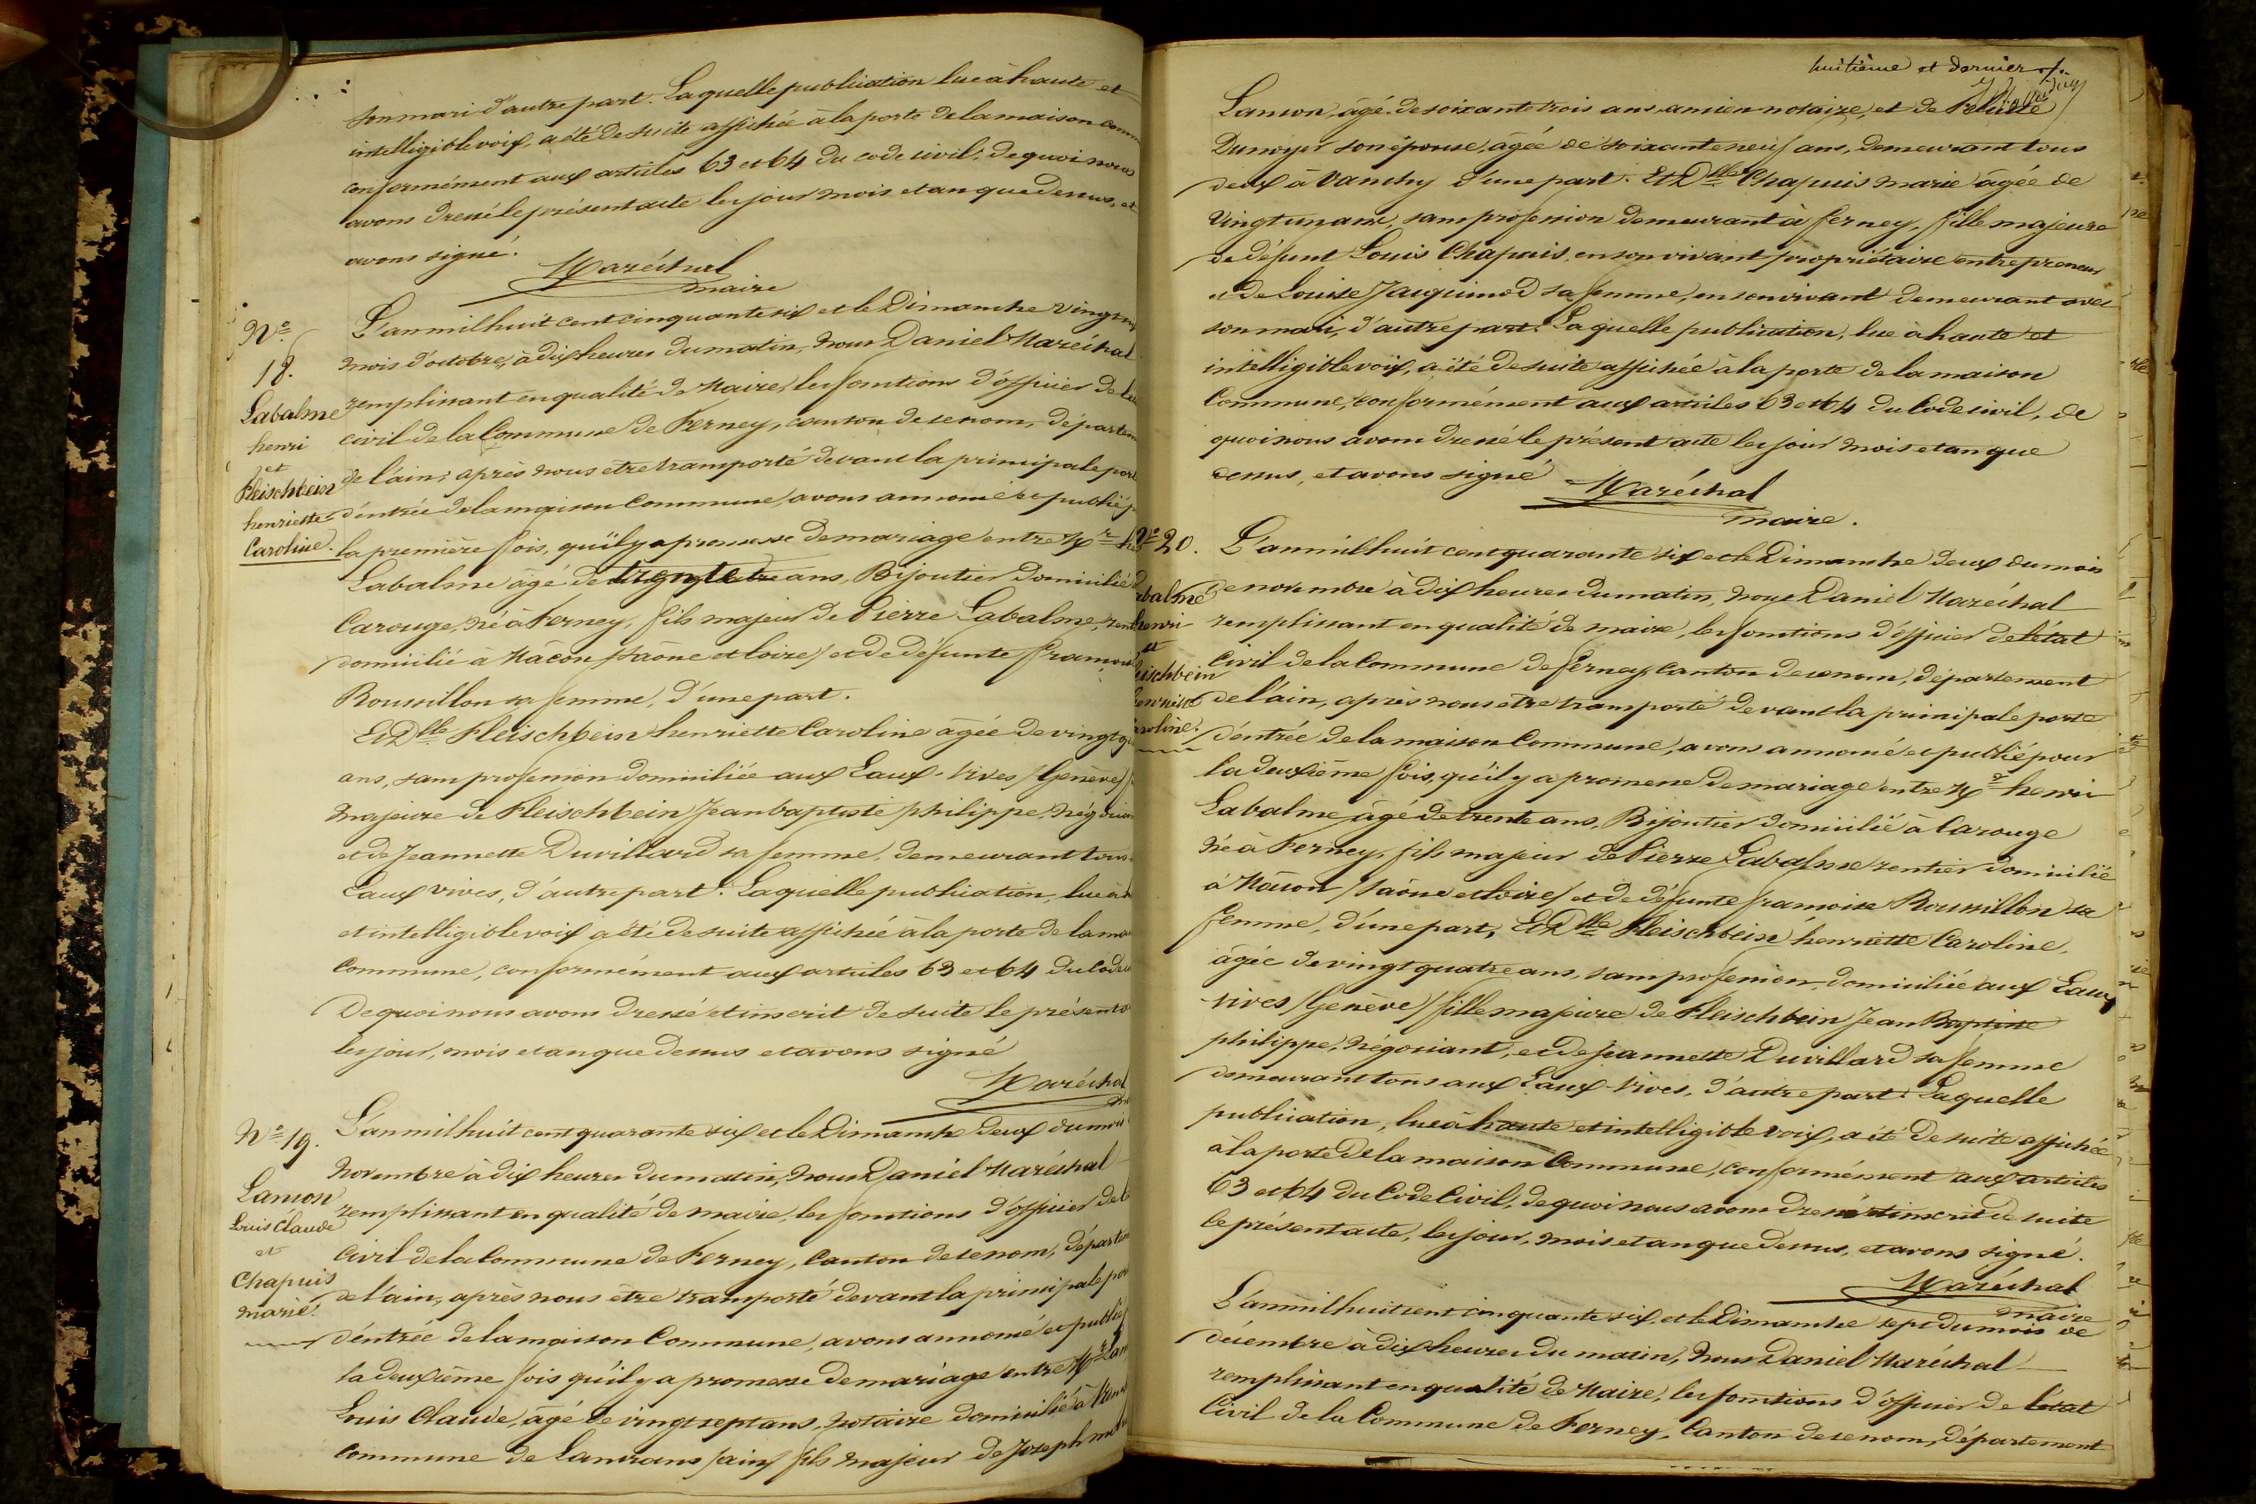 son mari d'autre part. Laquelle publication lue à haute et
intelligible voix, a été de suite affichée à la porte de la maison comm
conformément aux articles 63 et 64 du code civil, de quoi nous
avons dressé le présent acte les jour mois et an que dessus, et
avons signé.
Maréchal
maire
N° 18.
Labalme
henri
et
Fleischbein
henriette
Caroline.
L'an mil huit cent cinquante six et le Dimanche vingt
mois d'octobre, à dix heures du matin, Nous Daniel Maréchal
remplissant en qualité de Maire, les fonctions d'officier de
civil de la Commune de Ferney, canton de ce nom, départem
de l'ain; après nous etre transporté devant la principale port
d'entrée de la maison Commune, avons annoncé et publié p
la première fois, qu'il y a promesse de mariage entre Mr
Labalme âgé de trente ans, Bijoutier domicilié
Carouge, né à Ferney, fils majeur de Pierre Labalme, rent
domicilié à Mâcon (Saône et loire) et de défunte françoi
Roussillon sa femme, d'une part.
Et Dlle Fleischbein henriette Caroline âgée de vingt q
ans, sans profession domiciliée aux Eaux-Vives (Genève)
Majeure de Fleischbein Jean baptiste philippe, Négocian
et de Jeannette Duvillard sa femme, demeurant tous
Eaux vives, d'autre part. Laquelle publication, lue à
et intelligible voix a été de suite affichée à la porte de la ma
Commune, conformément aux articles 63 et 64 du Code
De quoi nous avons dressé et inscrit de suite le présent
les jour, mois et an que dessus et avons signé
Maréchal
N° 19.
Lanson
Louis Claude
et
Chapuis
marie.
L'an mil huit cent quarante six et le Dimanche deux du mois
Novembre à dix heures du matin, Nous Daniel Maréchal
remplissant en qualité de maire, les fonctions d'officier de
Civil de la Commune de Ferney, Canton de ce nom, départem
de l'ain, après nous être transporté devant la principale por
d'entrée de la maison Commune, avons annoncé et publié
la deuxième fois qu'il y a promesse de mariage entre Mr
Louis Claude, âgé de vingt sept ans, Notaire domicilié à
Commune de Lancrans (ain) fils majeur de Joseph
huitième et dernier f.
Lanson, âgé de soixante trois ans, ancien notaire, et de
Dumoyer son épouse, âgée de soixante neuf ans, demeurant tous
deux à Vanchy d'une part. Et Dlle Chapuis marie âgée de
vingt un ans, sans profession demeurant à ferney, fille majeure
de défunt Louis Chapuis, en son vivant propriétaire entrepreneur
et de Louise Jacquinod sa femme, en son vivant demeurant avec
son mari, d'autre part. Laquelle publication, lue à haute et
intelligible voix, a été de suite affichée à la porte de la maison
Commune, conformément aux articles 63 et 64 du Code civil, de
quoi nous avons dressé le présent acte les jour mois et an que
dessus, et avons signé
Maréchal
maire.
20.
henri
et
L'an mil huit cent quarante six et le Dimanche deux du mois
de novembre à dix heures du matin, Nous Daniel Maréchal
remplissant en qualité de maire, les fonctions d'officier de l'état
Civil de la Commune de ferney, Canton de ce nom, département
de l'ain, après nous etre transporté devant la principale porte
d'entrée de la maison Commune, avons annoncé et publié pour
la deuxième fois, qu'il y a promesse de mariage entre Mr henri
Labalme âgé de trente ans, Bijoutier domicilié à Carouge
Né à Ferney, fils majeur de Pierre Labalme rentier domicilié
à Mâcon (Saône et loire) et de défunte françoise Roussillon sa
femme, d'une part, Et Dlle Fleischbein henriette Caroline,
âgée de vingt quatre ans, sans profession, domiciliée aux Eaux
-vives (Genève) fille majeure de Fleischbein Jean Baptiste
philippe, Négociant, et de Jeannette Duvillard sa femme
demeurant tous aux Eaux-Vives, d'autre part. Laquelle
publication, lue à haute et intelligible voix, a été de suite affichée
à la porte de la maison Commune, conformément aux articles
63 et 64 du Code Civil, de quoi nous avons dressé et inscrit de suite
le présent acte, les jour, mois et an que dessus, et avons signé.
Maréchal
maire
L'an mil huit cent cinquante six, et le Dimanche sept du mois de
décembre à dix heures du matin, Nous Daniel Maréchal
remplissant en qualité de Maire, les fonctions d'officier de l'état
Civil de la Commune de Ferney, Canton de ce nom, département